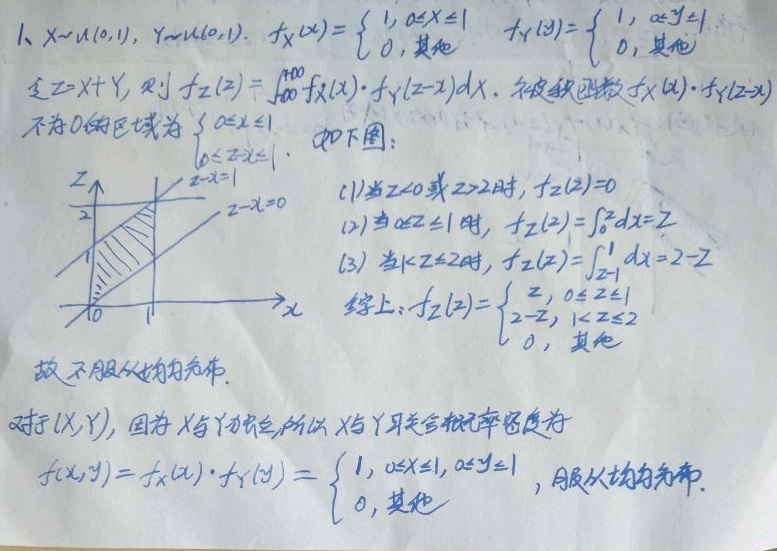 1、X~U(0,1), Y~U(0,1). f_X(x)={1, 0≤x≤1 0, 其他 f_Y(y)={1, 0≤y≤1 0, 其他
令Z=X+Y, 则 f_Z(z)=∫_{-∞}^{+∞} f_X(x)·f_Y(z-x)dx. 令被积函数 f_X(x)·f_Y(z-x)
不为0的区域为 {0≤x≤1 0≤z-x≤1. 如下图:
z 2 1 0 1 x z-x=1 z-x=0
(1)当z<0或z>2时, f_Z(z)=0
(2)当0≤z≤1时, f_Z(z)=∫_0^z dx=z
(3)当1<z≤2时, f_Z(z)=∫_{z-1}^1 dx=2-z
综上: f_Z(z)={z, 0≤z≤1 2-z, 1<z≤2 0, 其他
故不服从均匀分布.
对于(X,Y), 因为X与Y独立,所以X与Y联合概率密度为
f(x,y)=f_X(x)·f_Y(y)={1, 0≤x≤1, 0≤y≤1 0, 其他 , 服从均匀分布.